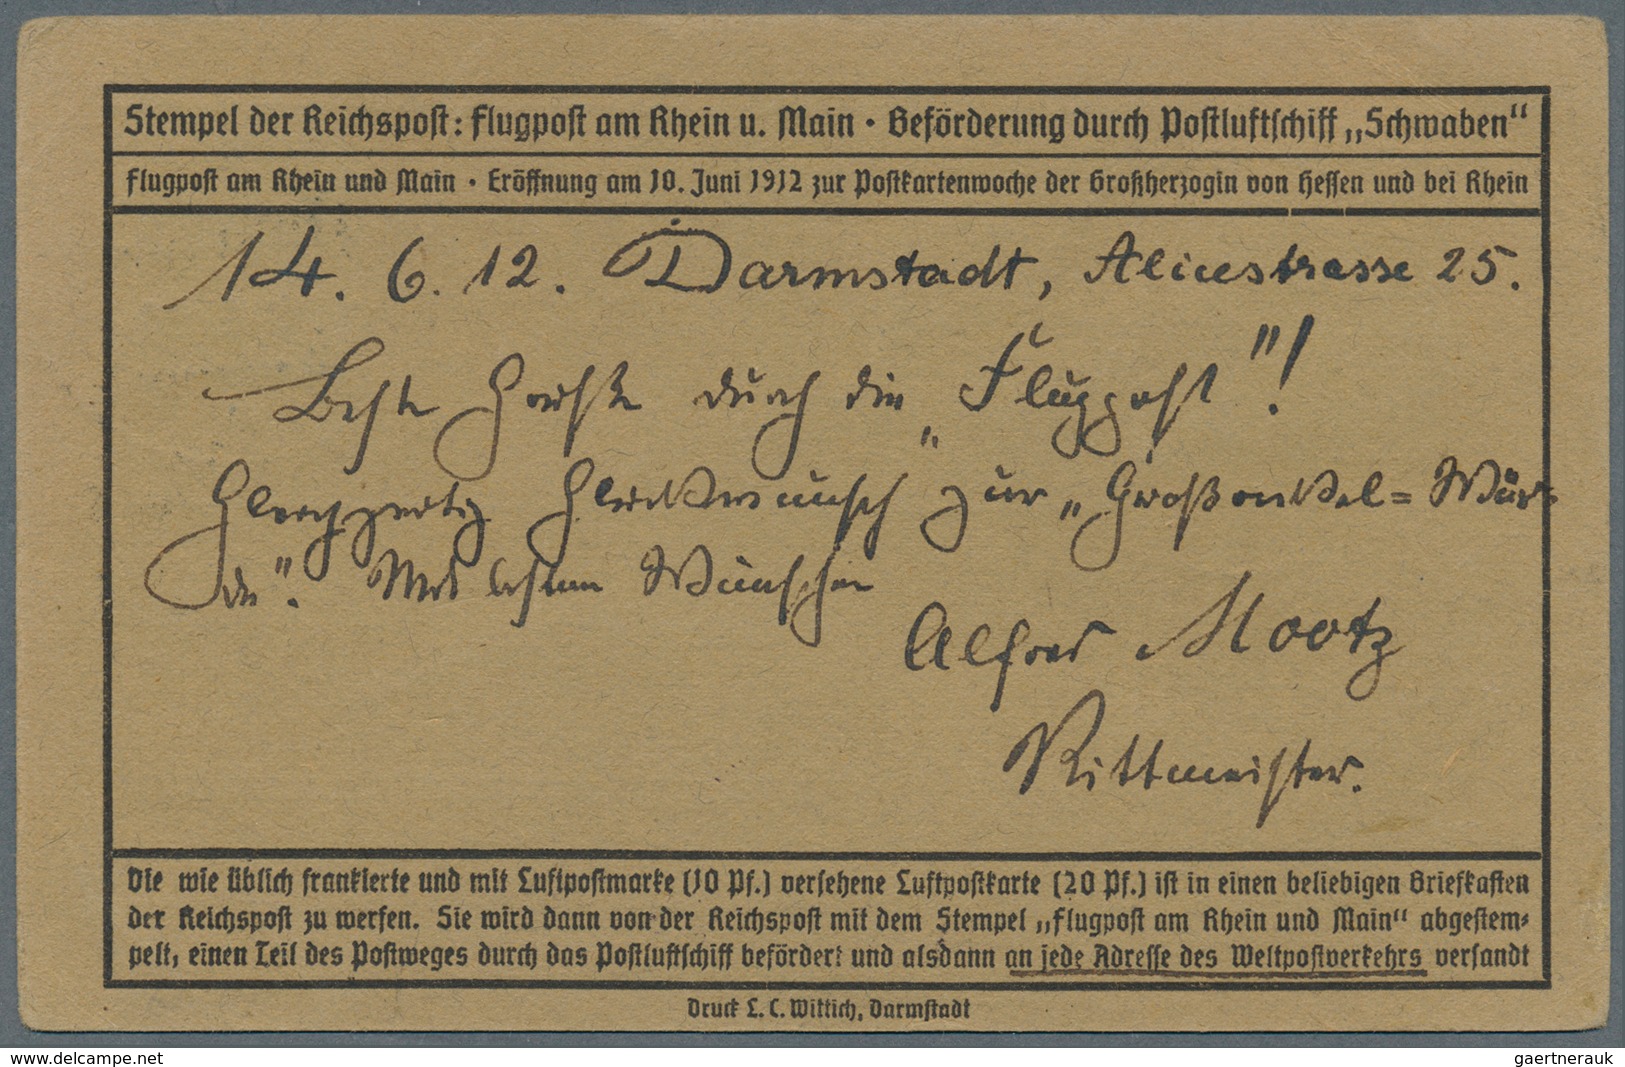 Stempel der Reichspost: Flugpost am Rhein u. Main · Beförderung durch Postluftschiff „Schwaben"
Flugpost am Rhein und Main · Eröffnung am 10. Juni 1912 zur Postkartenwoche der Großherzogin von Hessen und bei Rhein
14. 6. 12. Darmstadt, Alicestrasse 25.
Beste Grüße durch die „Flugpost"!
Gleichzeitig Glückwunsch zur „Großonkel=Wür-
de". Mit besten Wünschen
Alfred Mootz
Rittmeister.
Die wie üblich frankierte und mit Luftpostmarke (10 Pf.) versehene Luftpostkarte (20 Pf.) ist in einen beliebigen Briefkasten
der Reichspost zu werfen. Sie wird dann von der Reichspost mit dem Stempel „Flugpost am Rhein und Main" abgestem-
pelt, einen Teil des Postweges durch das Postluftschiff befördert und alsdann an jede Adresse des Weltpostverkehrs versandt
Druck L. C. Wittich, Darmstadt
www.delcampe.net
gaertnerauk